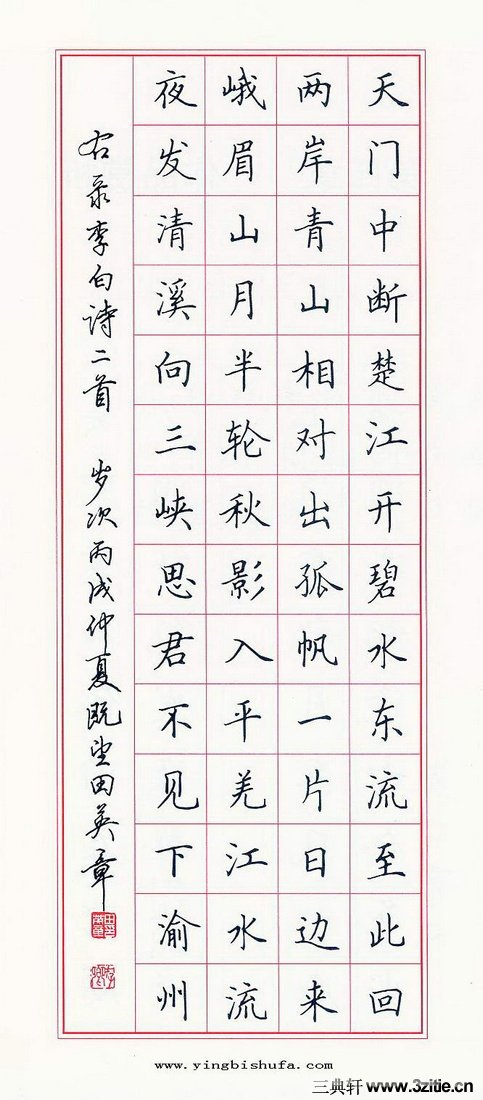 天门中断楚江开碧水东流至此回
两岸青山相对出孤帆一片日边来
峨眉山月半轮秋影入平羌江水流
夜发清溪向三峡思君不见下渝州
右录李白诗二首 岁次丙戌仲夏既望田英章
www.yingbishufa.com
三典轩 www.3zitie.cn